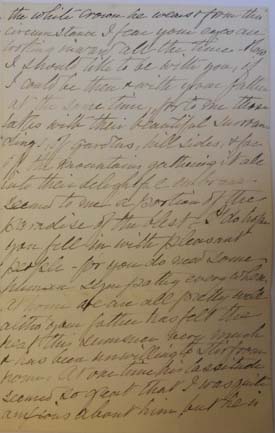 the white crown he wears & form this
circumstance I fear your eyes are
looking inward all the time. How
I should like to be with you, if
I could be there & with your father
at the same time, for to me those
lakes with their beautiful surroun
dings, of gardens, hill sides, & far
off the mountains gathering it all
into their delightful embrace
seemed to me a portion of the
paradise of the blest. I do hope
you fell in with pleasant
people - for you do need some
human sympathy everywhere.
At home we are all pretty well
altho' your father has felt the
heat this summer very much
& has been unwilling to stir from
home. At one time his lassitude
seemed so great that I was quite
anxious about him, but he is